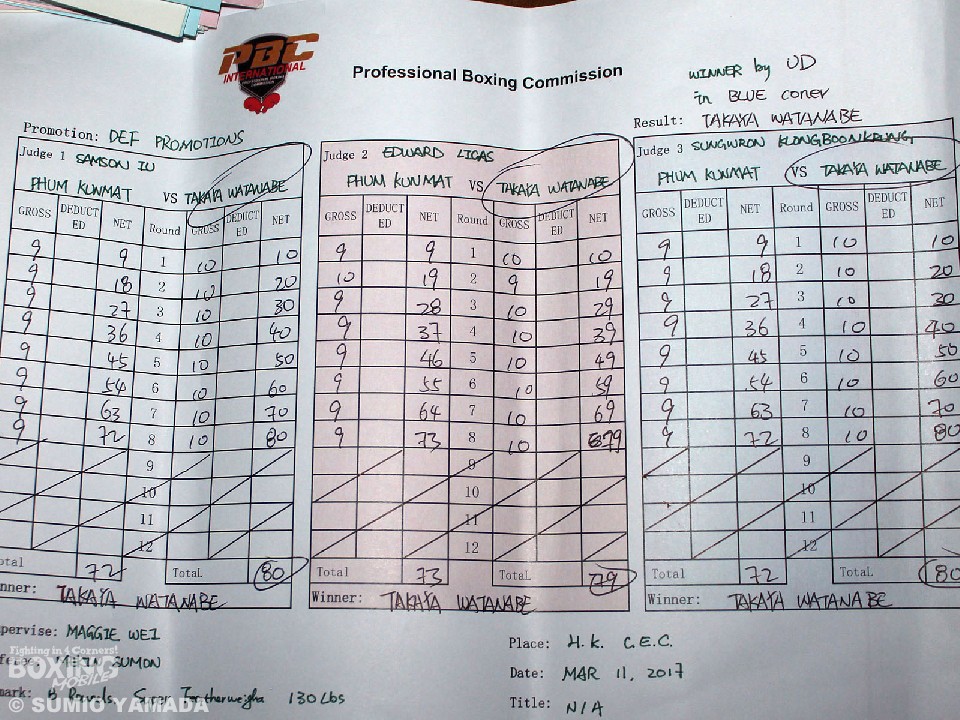 PBC
INTERNATIONAL
PROFESSIONAL BOXING COMMISSION
Professional Boxing Commission
WINNER by UD
in BLUE coner
Result: TAKAYA WATANABE
Promotion: DEF PROMOTIONS
Judge 1 SAMSON IU
PHUM KUNMAT VS TAKAYA WATANABE
GROSS DEDUCTED NET Round GROSS DEDUCTED NET
9 9 1 10 10
9 18 2 10 20
9 27 3 10 30
9 36 4 10 40
9 45 5 10 50
9 54 6 10 60
9 63 7 10 70
9 72 8 10 80
9
10
11
12
otal 72 Total 80
nner: TAKAYA WATANABE
Judge 2 EDWARD LIGAS
PHUM KUNMAT VS TAKAYA WATANABE
GROSS DEDUCTED NET Round GROSS DEDUCTED NET
9 9 1 10 10
10 19 2 9 19
9 28 3 10 29
9 37 4 10 39
9 46 5 10 49
9 55 6 10 59
9 64 7 10 69
9 73 8 10 79
9
10
11
12
Total 73 Total 79
Winner: TAKAYA WATANABE
Judge 3 SUNGWRON KLONGBOONKRUNG
PHUM KUNMAT VS TAKAYA WATANABE
GROSS DEDUCTED NET Round GROSS DEDUCTED NET
9 9 1 10 10
9 18 2 10 20
9 27 3 10 30
9 36 4 10 40
9 45 5 10 50
9 54 6 10 60
9 63 7 10 70
9 72 8 10 80
9
10
11
12
Total 72 Total 80
Winner: TAKAYA WATANABE
pervise: MAGGIE WEI
SUMON
mark: 8 Rounds. Super Featherweight 130 Lbs
Place: H.K. C.E.C.
Date: MAR 11, 2017
Title: N/A
Fighting in 4 Corners!
BOXING
MOBILE
© SUMIO YAMADA